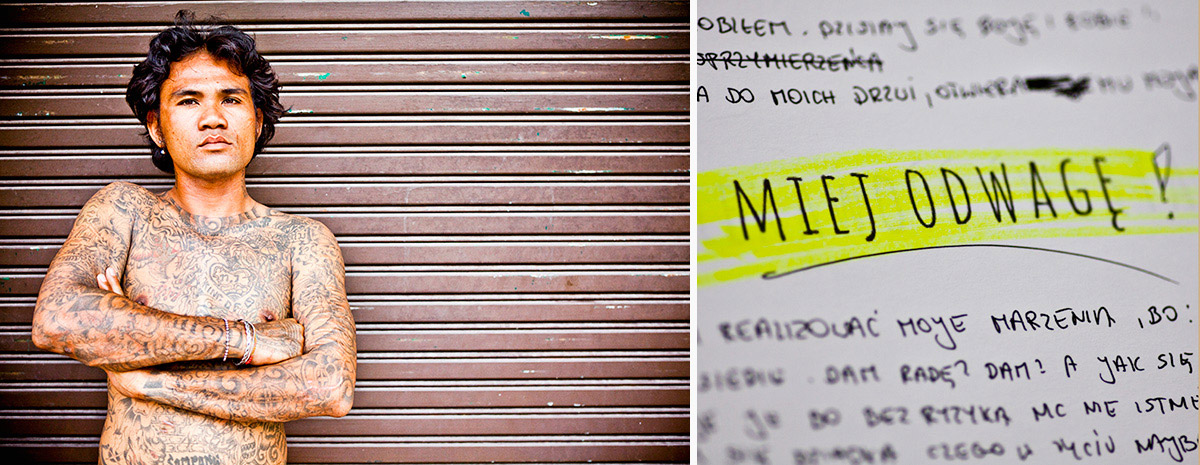 OBIŁEM. DZISIAJ SIĘ BOJĘ I ROBIĘ
SPRZYMIERZEŃCA
A DO MOICH DRZWI, OTWIERA MU MOJA
MIEJ ODWAGĘ!
REALIZOWAĆ MOJE MARZENIA, BO:
DAM RADĘ? DAM? A JAK SIĘ
JĘ JĄ BO BEZ RYZYKA NIC NIE ISTNIE
CZEGO W ŻYCIU NAJB